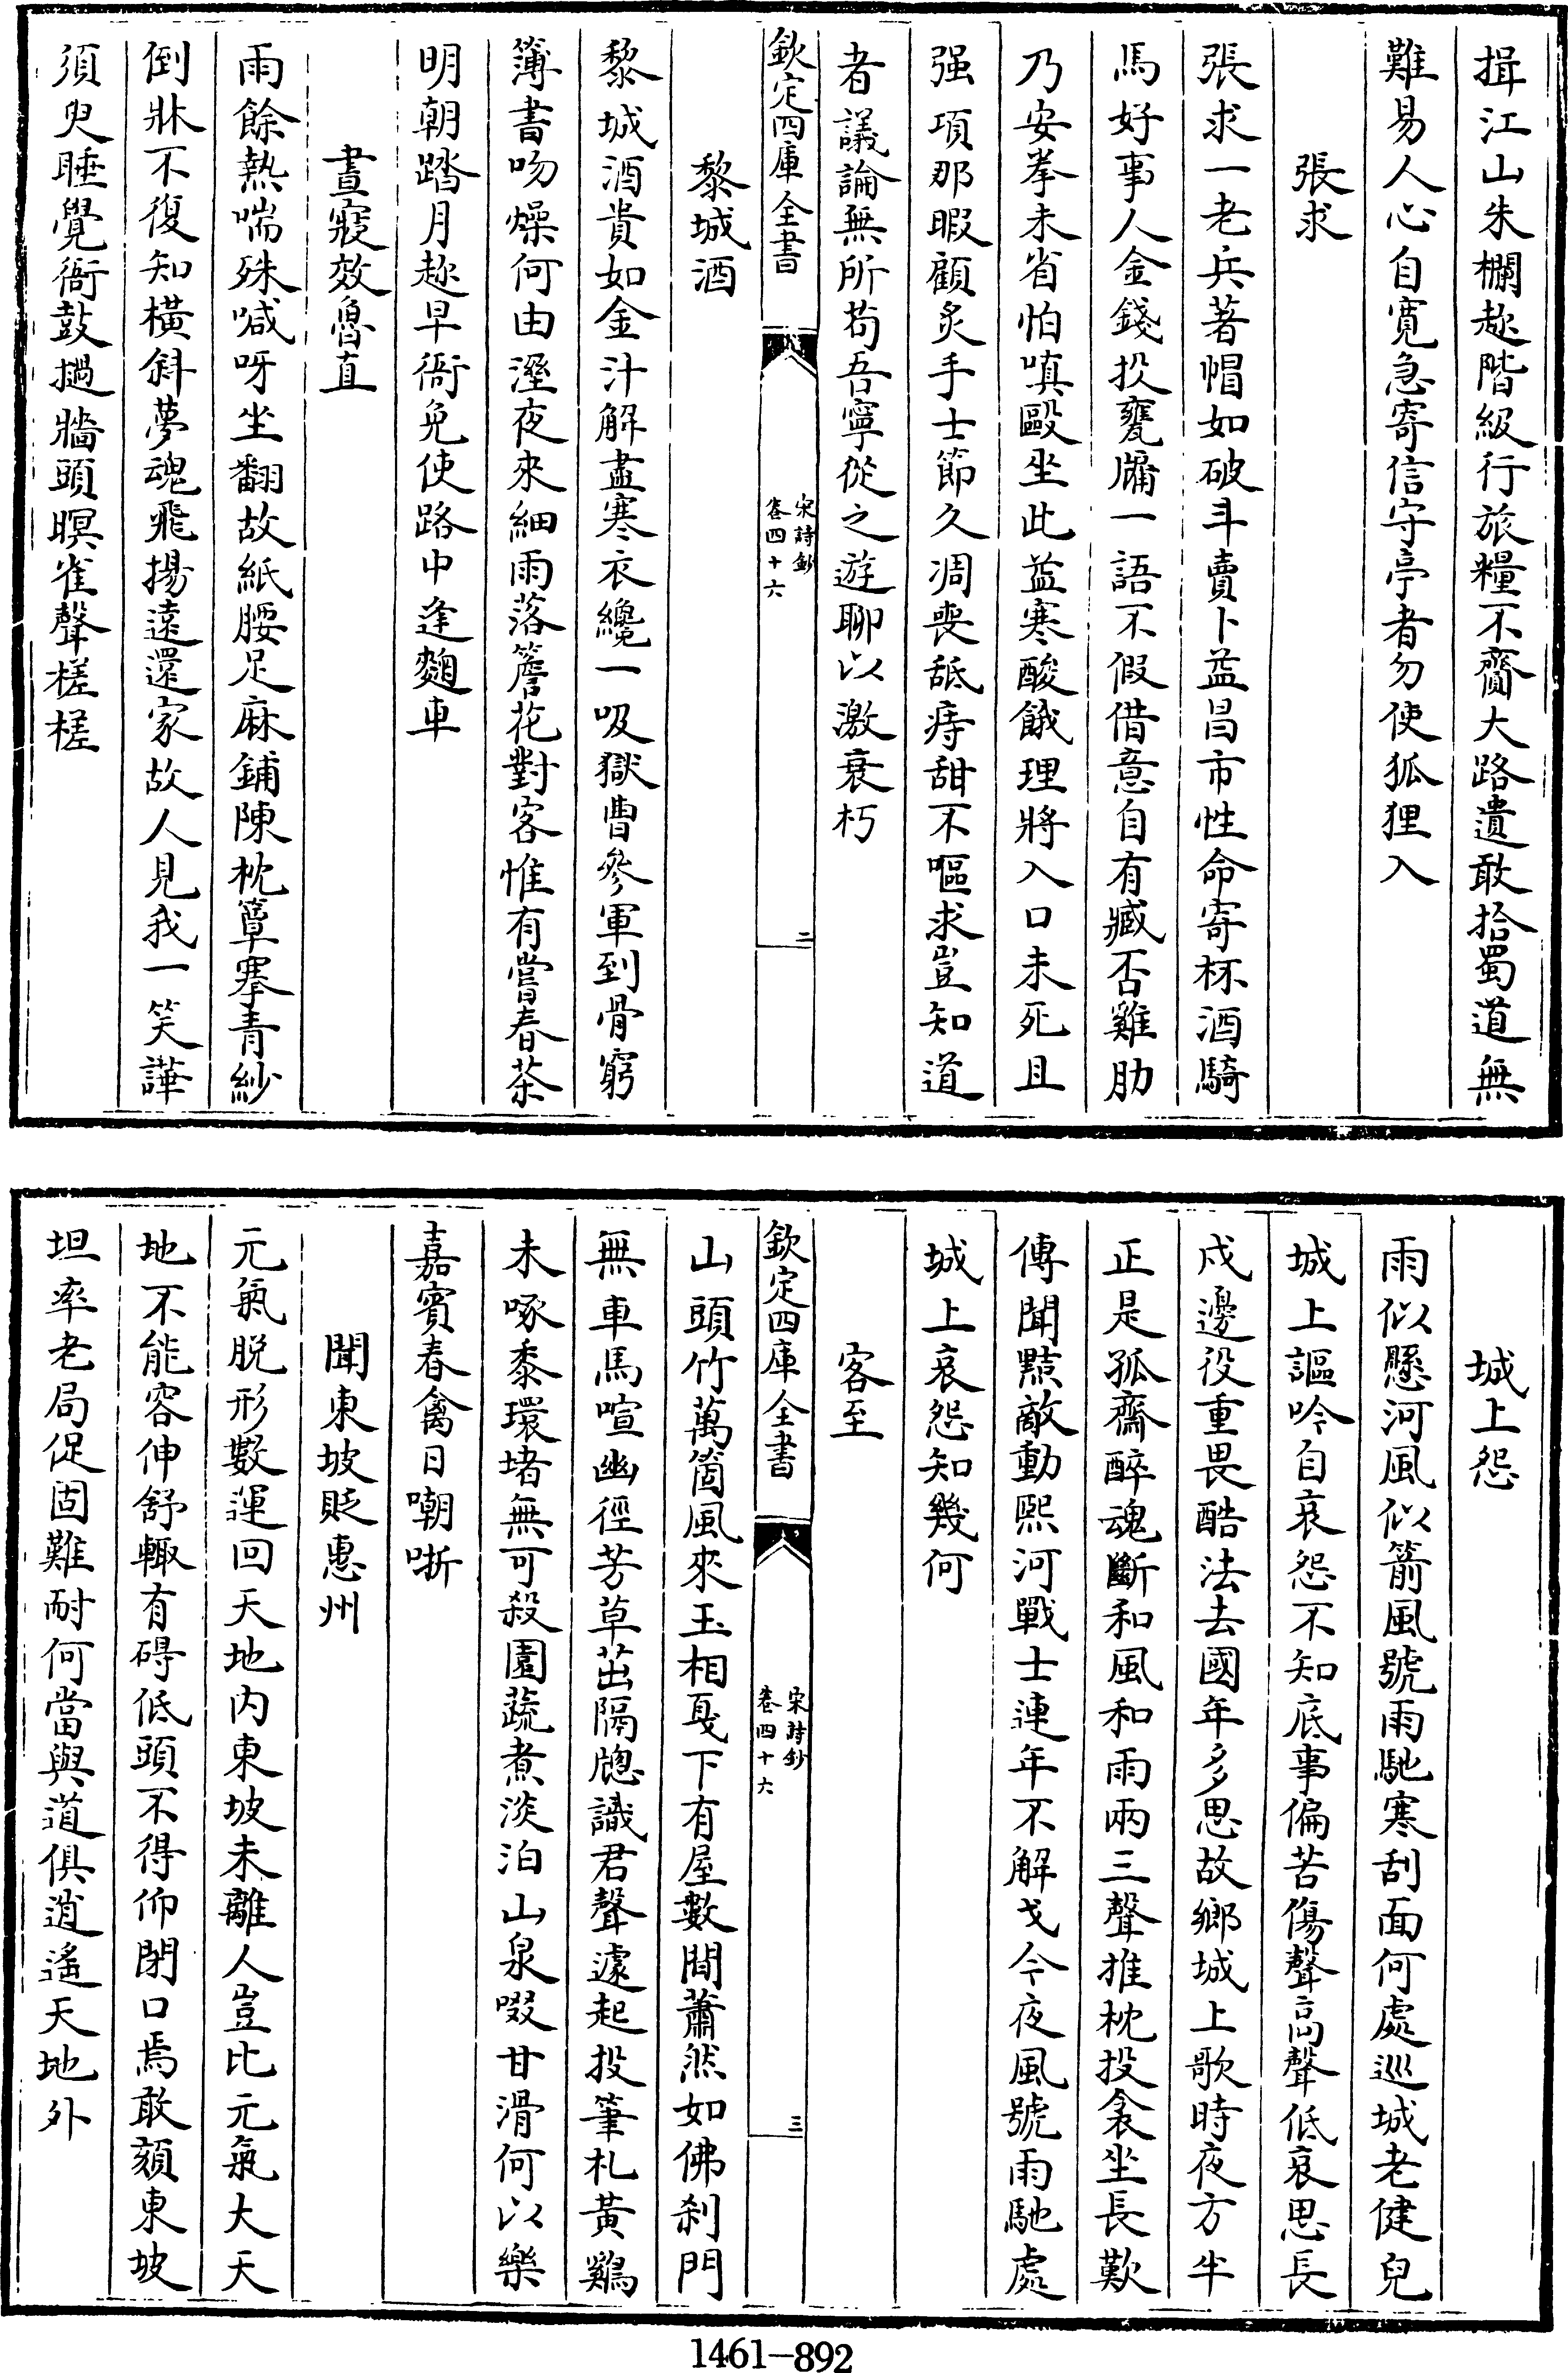 揖江山朱欄趂階級行旅糧不齎大路遺敢拾蜀道無
難易人心自寛急寄信守亭者勿使狐狸入
張求
張求一老兵著帽如破斗賣卜益昌市性命寄杯酒騎
馬好事人金錢投甕牖一語不假借意自有臧否雞肋
乃安拳未省怕嗔毆坐此益寒酸餓理將入口未死且
强項那暇顧炙手士節久凋喪舐痔甜不嘔求豈知道
者議論無所苟吾寧從之遊聊以激衰朽
欽定四庫全書
宋詩鈔
卷四十六
二
黎城酒
黎城酒貴如金汁解盡寒衣纔一吸獄曹參軍到骨窮
簿書吻燥何由溼夜來細雨落簷花對客惟有嘗春茶
明朝踏月趂早衙免使路中逢麴車
晝寢效魯直
雨餘熱喘殊喊呀坐翻故紙腰足麻鋪陳枕簟搴青紗
倒牀不復知橫斜夢魂飛揚遠還家故人見我一笑譁
須臾睡覺衙鼓撾牆頭暝雀聲槎槎
城上怨
雨似懸河風似箭風號雨馳寒刮面何處巡城老健兒
城上謳吟自哀怨不知底事偏苦傷聲高聲低哀思長
戍邊役重畏酷法去國年多思故鄉城上歌時夜方半
正是孤齋醉魂斷和風和雨兩三聲推枕投衾坐長歎
傳聞黠敵動熙河戰士連年不解戈今夜風號雨馳處
城上哀怨知幾何
客至
欽定四庫全書
宋詩鈔
卷四十六
三
山頭竹萬箇風來玉相戛下有屋數間蕭然如佛刹門
無車馬喧幽徑芳草茁隔牕識君聲遽起投筆札黃鷄
未啄黍環堵無可殺園蔬煮淡泊山泉啜甘滑何以樂
嘉賓春禽日嘲哳
聞東坡貶惠州
元氣脱形數運回天地内東坡未離人豈比元氣大天
地不能容伸舒輙有碍低頭不得仰閉口焉敢頦東坡
坦率老局促固難耐何當與道俱逍遙天地外
1461-892